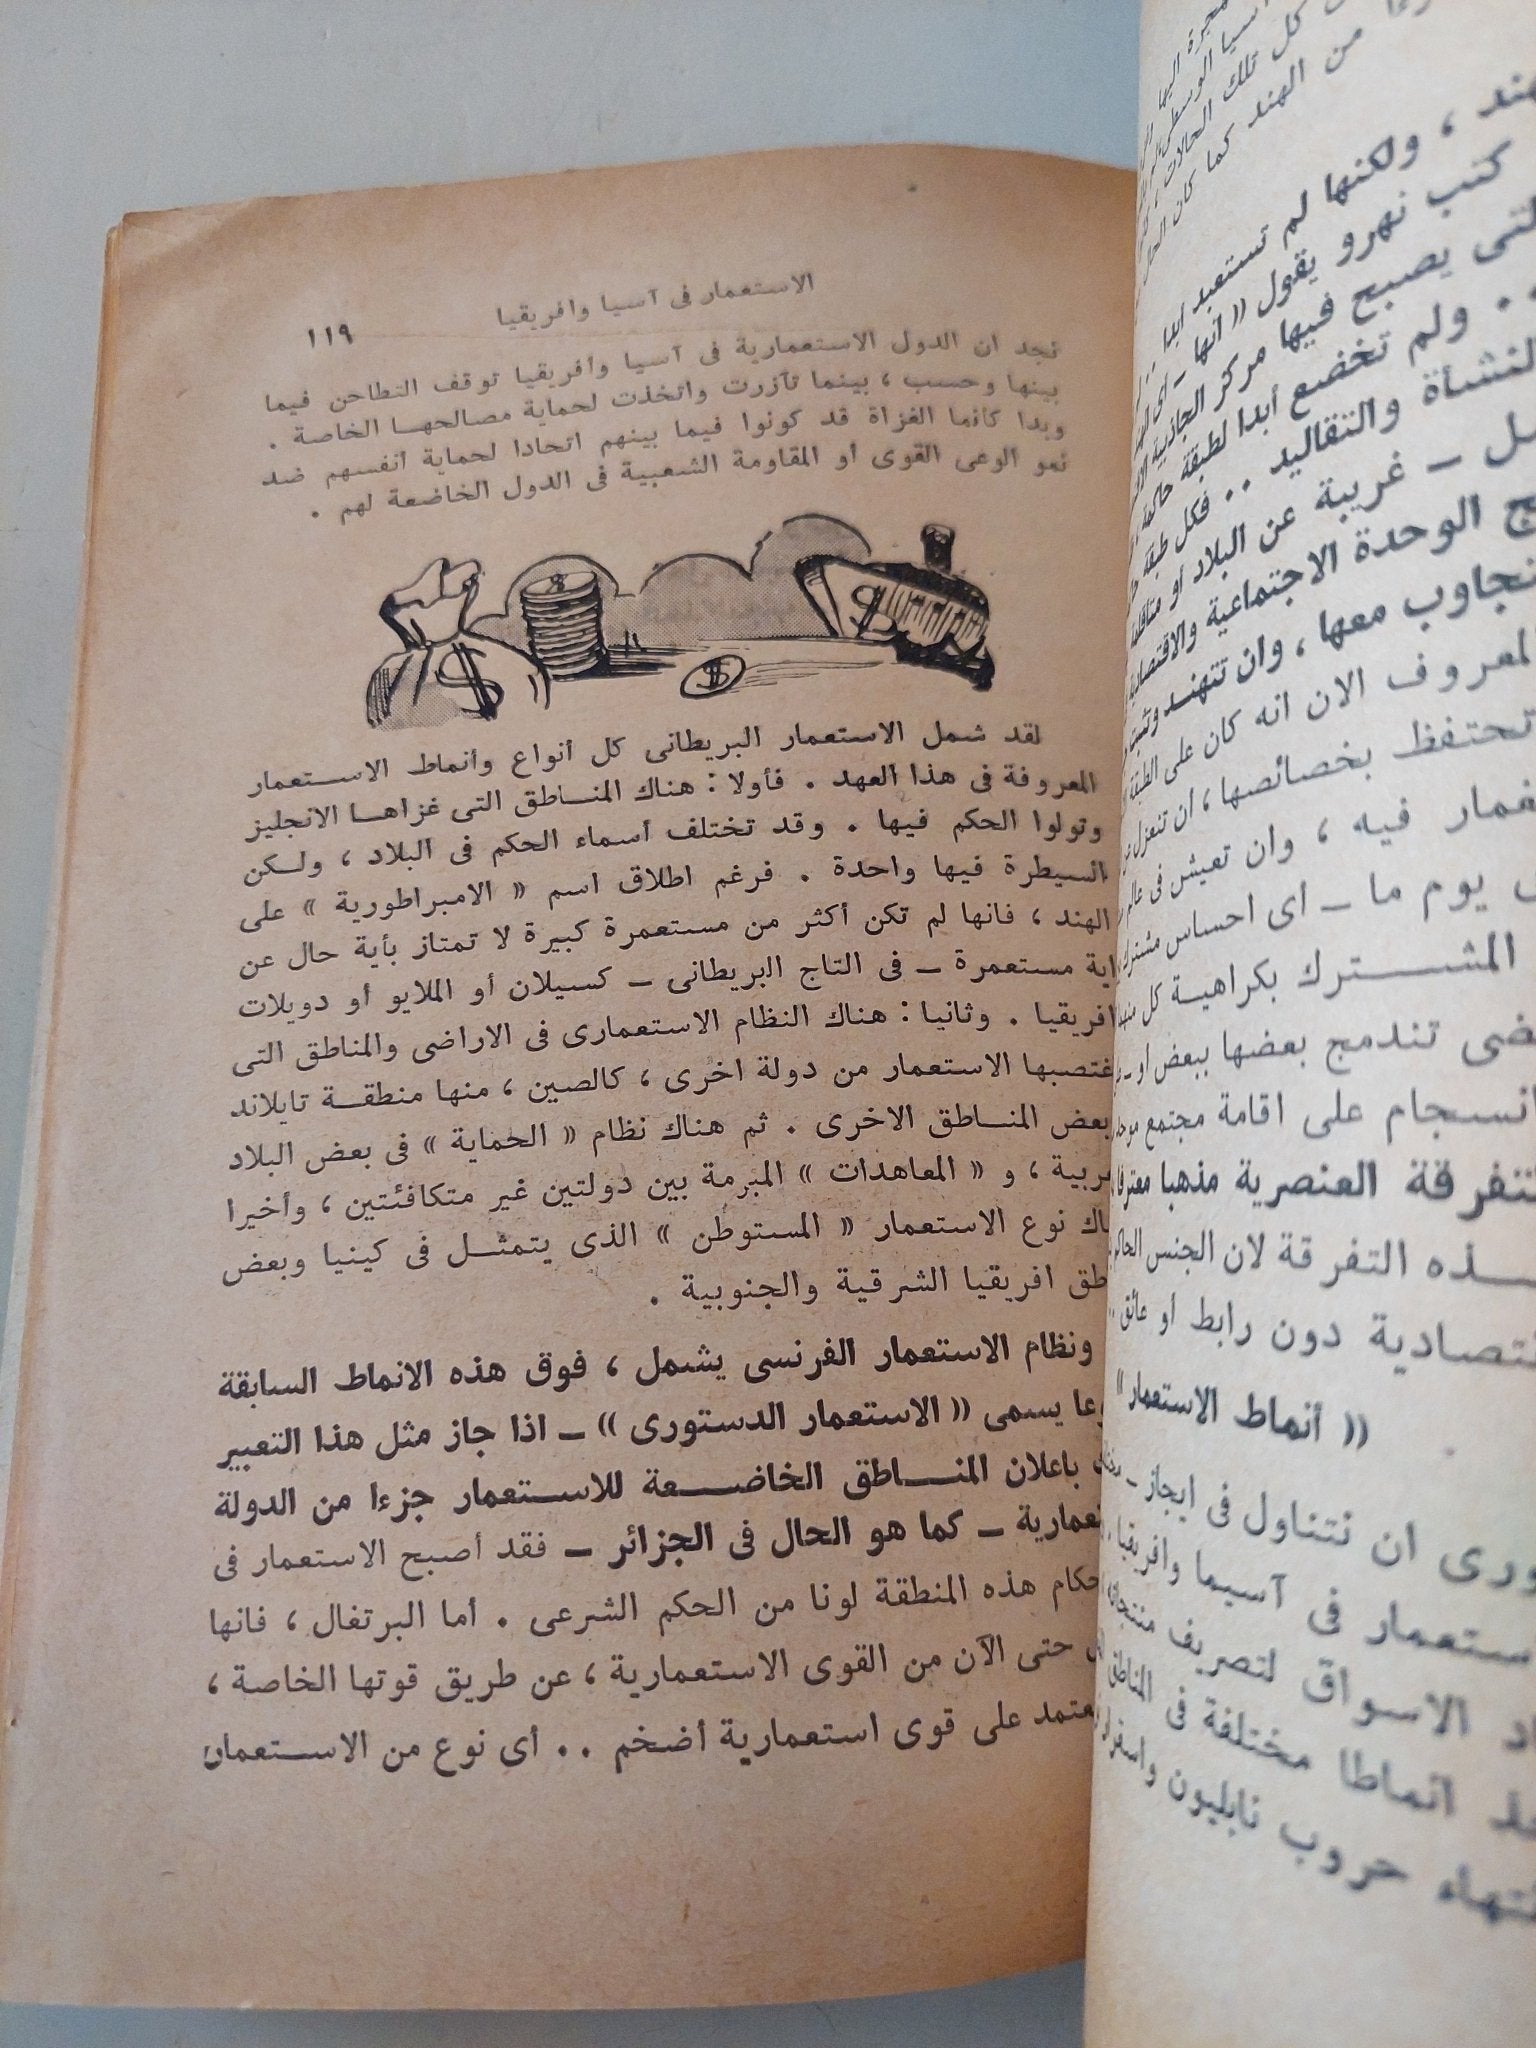 الاستعمار فى آسيا وافريقيا ١١٩
نجد ان الدول الاستعمارية فى آسيا وأفريقيا توقف التطاحن فيما
بينها وحسب ، بينما تآزرت واتخذت لحماية مصالحهـا الخاصة .
وبدا كأنما الغزاة قد كونوا فيما بينهم اتحادا لحماية أنفسهم ضد
نمو الوعى القوى أو المقاومة الشعبية فى الدول الخاضعة لهم .
لقد شمل الاستعمار البريطانى كل أنواع وأنماط الاسـتعمار
المعروفة فى هذا العهد . فأولا : هناك المنـاطق التى غزاهـا الانجليز
وتولوا الحكم فيها . وقد تختلف أسماء الحكم فى البلاد ، ولـكن
السيطرة فيها واحدة . فرغم اطلاق اسم « الامبراطورية » على
الهند ، فانها لم تكن أكثر من مستعمرة كبيرة لا تمتاز بأية حال عن
اية مستعمرة ـ فى التاج البريطانى ـ كسيلان أو الملايو أو دويلات
افريقيا . وثانيا : هناك النظام الاستعمارى فى الاراضى والمناطق التى
غتصبها الاستعمار من دولة اخرى ، كالصين ، منها منطقـة تايلاند
بعض المنـاطق الاخرى . ثم هناك نظام « الحماية » فى بعض البلاد
ربية ، و « المعاهدات » المبرمة بين دولتين غير متكافئتين ، وأخيرا
اك نوع الاستعمار « المستوطن » الذى يتمثـل فى كينيا وبعض
طق افريقيا الشرقية والجنوبية .
ونظام الاستعمار الفرنسى يشمل ، فوق هذه الانماط السابقة
وعا يسمى « الاستعمار الدستورى » ـ اذا جاز مثل هذا التعبير
باعلان المنـــاطق الخاضـــعة للاســتعمار جزءا من الدولة
تعمارية ـ كما هو الحال فى الجزائر ـ فقد أصبح الاستعمار فى
حكام هذه المنطقة لونا من الحكم الشرعى . أما البرتغال ، فانها
حتى الآن من القوى الاستعمارية ، عن طريق قوتها الخاصة ،
عتمد على قوى استعمارية أضخم . . أى نوع من الاسـتعمار
من الهند كما كان الحال
هند ، ولكنها لم تستعبد ابدا
كتب نهرو يقول « انها ـ اى
لتى يصبح فيها مركز الجاذبية
. . ولم تخضع أبدا لطبقة حاكمة
لنشأة والتقاليد . . فكل طبقة
ـل ـ غريبة عن البلاد او
ج الوحدة الاجتماعية والاقتصادية
تجاوب معها ، وان تتهنـد
لمعروف الان انه كان على الطبقة
تحتفظ بخصائصها ، ان تنعزل
غمار فيه ، وان تعيش فى عالم
يوم ما ـ اى احساس مشترك
المشـــترك بكراهيـة كل
ضى تندمج بعضها ببعض او ـ
انسجام على اقامة مجتمع
تفرقة العنصرية مذهبا معترفا
ـذه التفرقة لان الجنس الحاكم
قتصادية دون رابط أو عائق . .
« أنماط الاستعمار »
ورى ان نتناول فى ايجاز ـ
ستعمار فى آسيا وافريقيا
اد الاسواق لتصريف منتجات
انماطا مختلفة فى المناطق
تهاء حروب نابليون